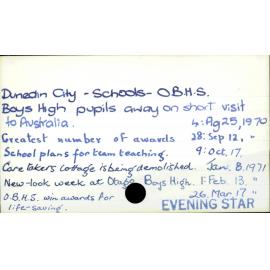 Dunedin City - Schools - O.B.H.S.
Boys High pupils away on short visit
to Australia. 4: Ag 25, 1970
Greatest number of awards 28: Sep 12, "
School plans for team teaching. 9: Oct. 17.
Care takers cottage is being demolished. Jan. 8. 1971
New-look week at Otago Boys High. 1: Feb. 13. "
O.B.H.S. win awards for 26. Mar 17 "
life-saving.
EVENING STAR